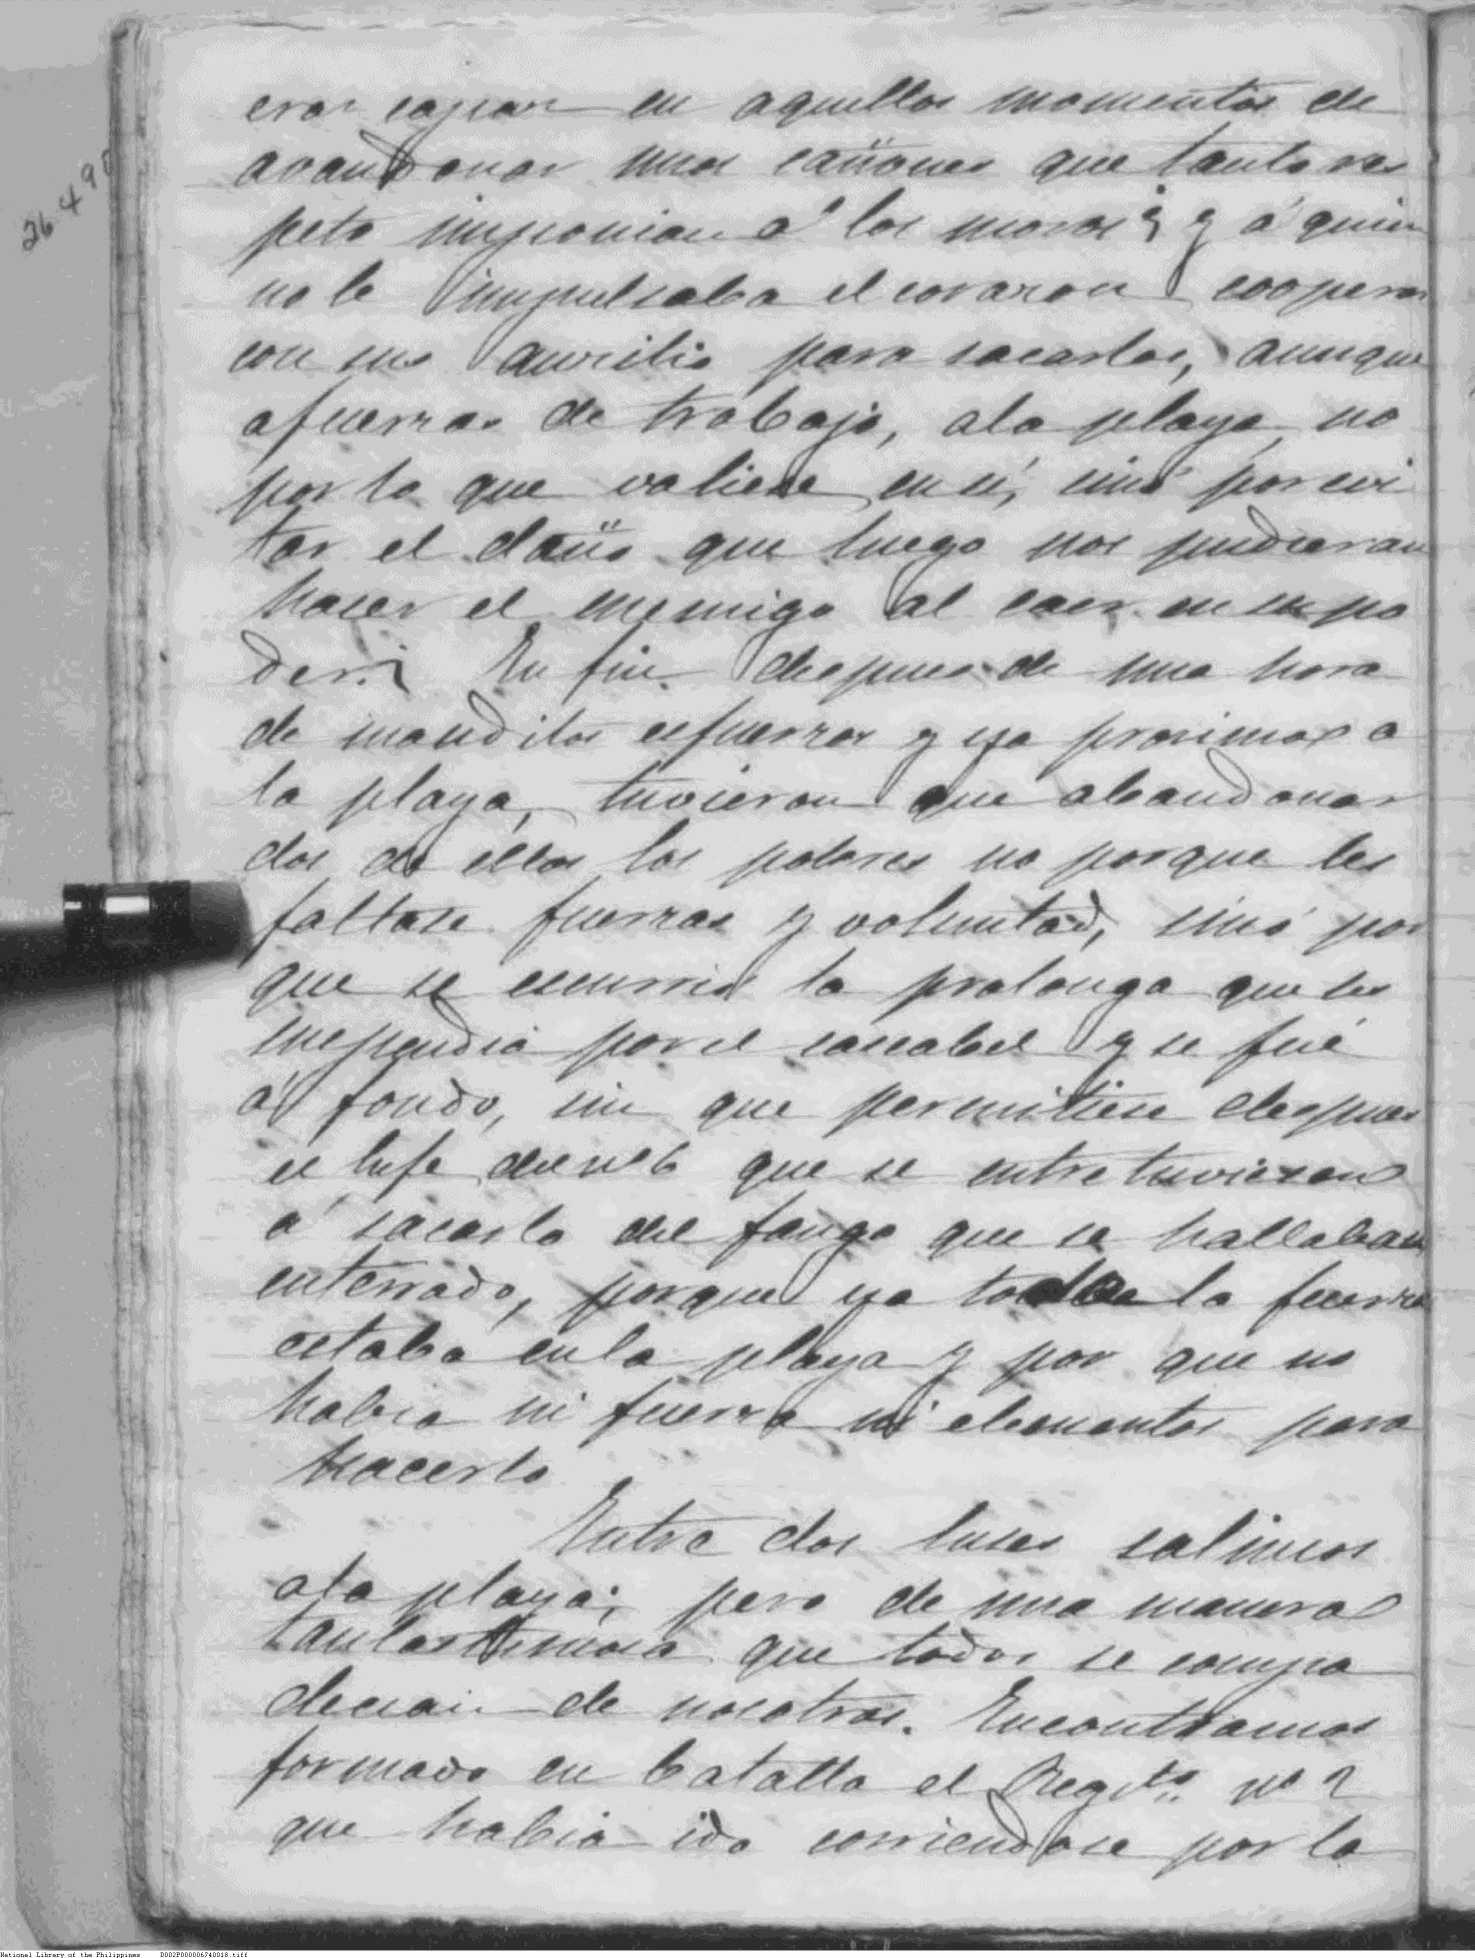 eran capaces en aquellos momentos de
avandonar unos cañones que tanto res
peto imponian á los moros; y á quien
no le impulsaba el corazon cooperar
con su auxilio para sacarlos, aunque
afuerzas de trabajo, ala playa, no
por lo que valiese en sí, sinó por evi
tar el daño que luego nos pudieran
hacer el enemigo al caer en su po
der. En fin despues de una hora
de inauditos esfuerzos y ya proximos a
la playa, tuvieron que abandonar
dos de ellos los pobres no porque les
faltase fuerzas y voluntad, sinó por
que se escurria la prolonga que les
suspendia por el cascabel y se fué
á fondo, sin que permitiese despues
el Gefe del nº 6 que se entretuvieran
á sacarlo del fango que se hallaban
enterrado, porque ya toda la fuerza
estaba en la playa y por que no
habia ni fuerza ni elementos para
hacerlo
Entre dos luces salimos
ala playa; pero de una manera
tan lastimosa que todos se compa
decian de nosotros. Encontramos
formado en batalla el Regto. nº 2
que habia ido corriendose por la
26.490
National Library of the Philippines D002P000006740018.tiff